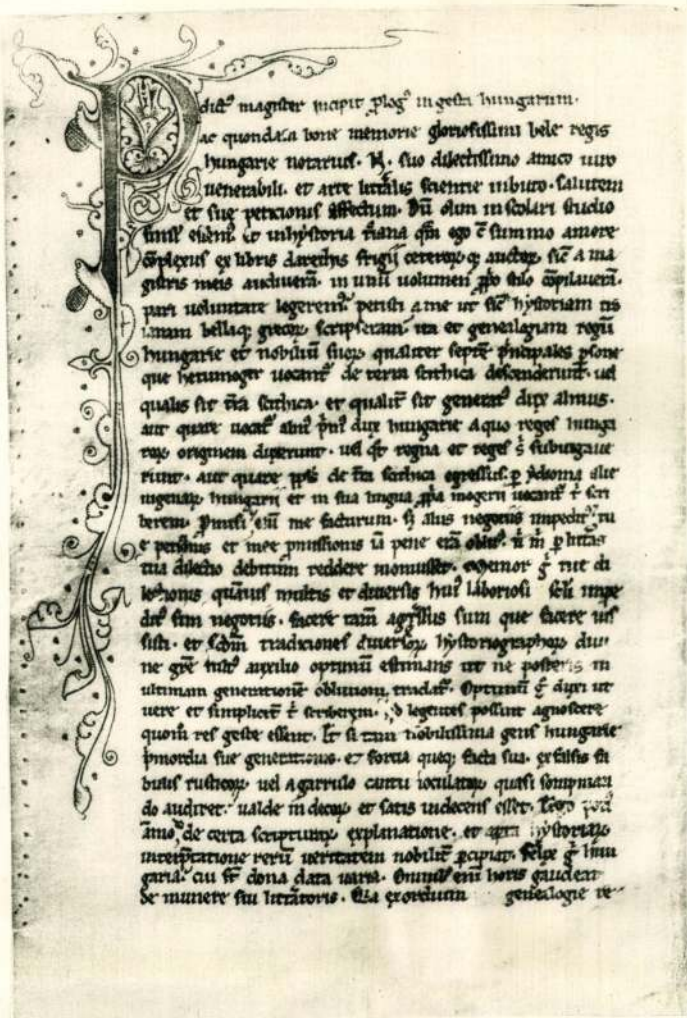 P dict᷒ magister incipit ꝓlog᷒ in gesta hungarum.
ac quondam bone memorie gloriosissimi bele regis
hungarie notarius. N. suo dilectissimo amico uiro
uenerabili. et arte litt̄alis scientie inbuto. salutem
et sue peticionis effectum. Dū olim in scolari studio
simul essem᷒. et in hystoria t̄iana qm̄ ego cū summo amore
cōplexus ex libris darethis frigii ceterorꝝ qꝫ auctorꝝ sic̄ a ma
gistris meis audiuerā. in unū uolumen ꝓprio stilo cōpilauerā.
pari uoluntate legerem᷒. petisti a me ut sic̄ hystoriam tro
ianam bellaqꝫ grecorꝝ scripseram. ita et genealogiam regū
hungarie et nobiliū suorꝝ qualiter septē p̄ncipales ꝑsone
que hetumoger uocant᷑ de terra scithica descenderunt. uel
qualis sit t̄ra scithica. et qualit̄ sit generat᷒ dux almus.
aut quare uocat᷑ alm᷒ p̄m᷒ dux hungarie a quo reges hunga
rorꝝ originem duxerunt. uel qt̄ regna et reges s̄ subiugaue
runt. aut quare ppl̄s de t̄ra scithica egressus ꝑ ydioma alie
nigenarꝝ hungarii et in sua lingua ꝓpria mogerii uocant᷑ t᷑ scri
berem. Promisi eni᷒ me facturum. sꝫ aliis negotiis impedit᷒. tu
e petitionis et mee promissionis iā pene erā oblit᷒. n̄ m̄ ꝑ litt̄as
tua dilectio debitum reddere monuisset. Memor g̊ tue di
lectionis quāuis multis et diuersis hui᷒ laboriosi sc̄li impe
dit᷒ sim negotiis. facere tam̄ aggressus sum que facere ius
sisti. et sc̄dm traditiones diuersorꝝ hystoriographorꝝ diui
ne grē fult᷒ auxilio optimū estimans ut ne posteris in
ultimam generationē obliuioni tradat᷑. Optimū g̊ duxi ut
uere et simplicit̄ t᷑ scriberem. qd̄ legentes possint agnoscere
quom̊ res geste essent. Et si tam nobilissima gens hungarie
p̄mordia sue generationis. et fortia queqꝫ facta sua. ex falsis fa
bulis rusticorꝝ uel a garrulo cantu ioculatorꝝ quasi sompnian
do audiret. ualde indecorꝝ et satis indecens esset. Ergo poti᷒
ammodo de certa scripturarꝝ explanatione. et aperta hystoriarꝝ
interp̄tatione rerū ueritatem nobilit̄ ꝑcipiat. Felix g̊ hun
garia. cui st̄ dona data uaria. Omnib᷒ eni᷒ horis gaudeat
de munere sui litt̄atoris. Q̄a exordium genealogie re